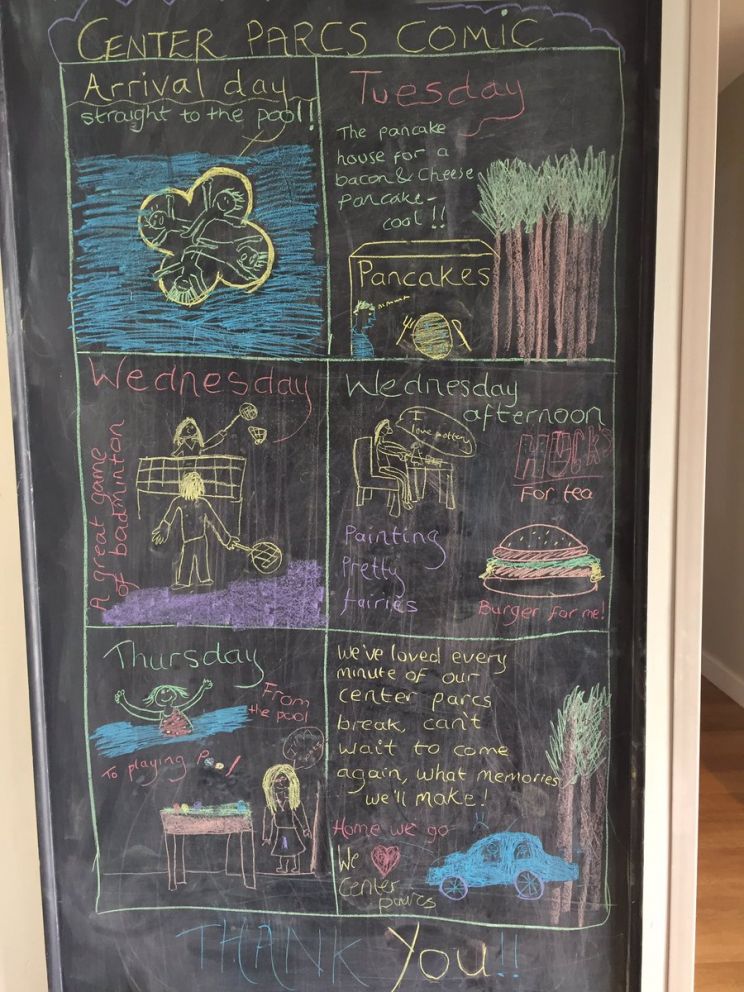 CENTER PARCS COMIC
Arrival day
straight to the pool!!
Tuesday
The pancake
house for a
bacon & Cheese
pancake-
cool!!
Pancakes
Wednesday
A great game
of badminton
Wednesday
afternoon
I
love pottery
HUCKS
For tea
Painting
Pretty
fairies
Burger for me!
Thursday
From
the pool
To playing Pool
We've loved every
minute of our
center parcs
break, can't
wait to come
again, what memories
we'll make!
Home we go
We
center
parcs
THANK YOU!!